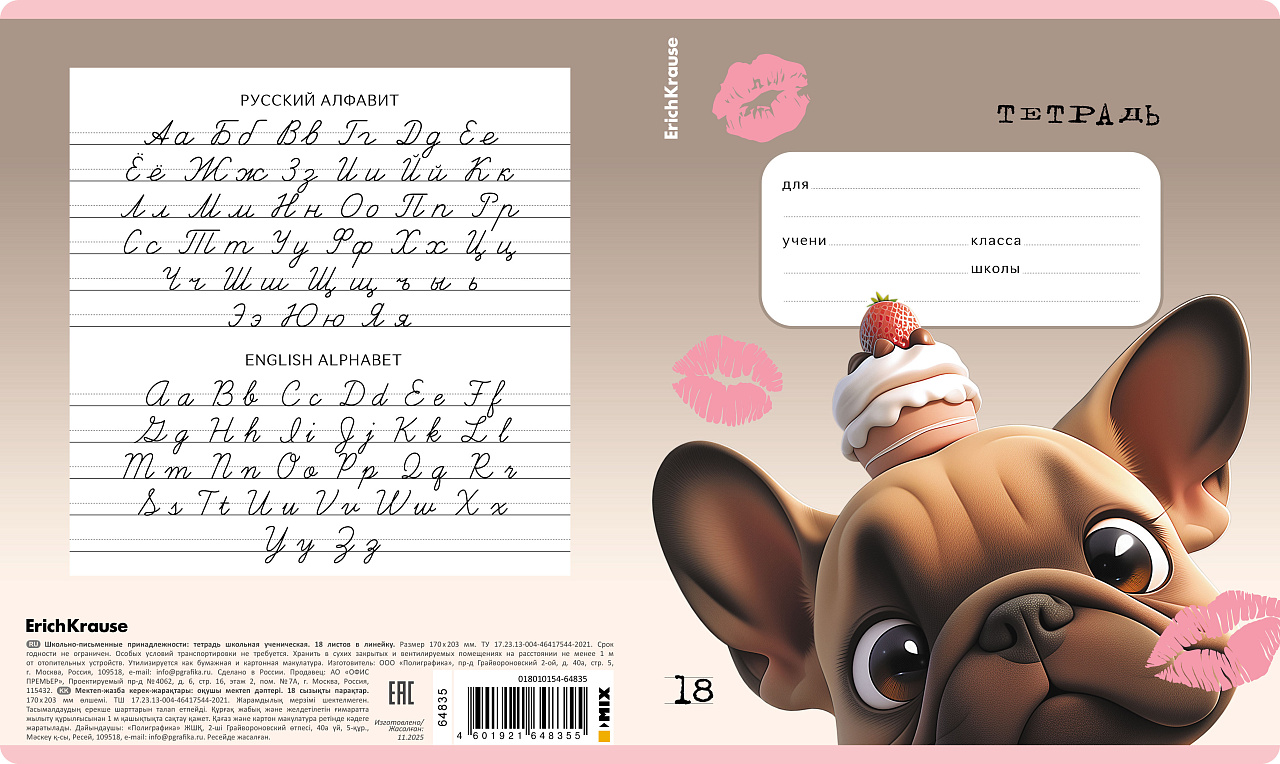 РУССКИЙ АЛФАВИТ
Аа Бб Вв Гг Дд Ее
Ёё Жж Зз Ии Йй Кк
Лл Мм Нн Оо Пп Рр
Сс Тт Уу Фф Хх Цц
Чч Шш Щщ ъ ы ь
Ээ Юю Яя
ENGLISH ALPHABET
Aa Bb Cc Dd Ee Ff
Gg Hh Ii Jj Kk Ll
Mm Nn Oo Pp Qq Rr
Ss Tt Uu Vv Ww Xx
Yy Zz
ErichKrause
RU Школьно-письменные принадлежности: тетрадь школьная ученическая. 18 листов в линейку. Размер 170х203 мм. ТУ 17.23.13-004-46417544-2021. Срок
годности не ограничен. Особых условий транспортировки не требуется. Хранить в сухих закрытых и вентилируемых помещениях на расстоянии не менее 1 м
от отопительных устройств. Утилизируется как бумажная и картонная макулатура. Изготовитель: ООО «Полиграфика», пр-д Грайвороновский 2-ой, д. 40а, стр. 5,
г. Москва, Россия, 109518, e-mail: info@pgrafika.ru. Сделано в России. Продавец: АО «ОФИС
ПРЕМЬЕР», Проектируемый пр-д, №4062, д. 6, стр. 16, этаж 2, пом. №7А, г. Москва, Россия,
115432. KK Мектеп-жазба керек-жарақтары: оқушы мектеп дәптері. 18 сызықты парақтар.
170х203 мм өлшемі. ТШ 17.23.13-004-46417544-2021. Жарамдылық мерзімі шектелмеген.
Тасымалдаудың ерекше шарттарын талап етпейді. Құрғақ жабық және желдетілетін ғимаратта
жылыту құрылғысынан 1 м қашықтықта сақтау қажет. Қағаз және картон макулатура ретінде кәдеге
жаратылады. Дайындаушы: «Полиграфика» ЖШҚ, 2-ші Грайвороновский өтпесі, 40а үй, 5-құр.,
Мәскеу қ-сы, Ресей, 109518, e-mail: info@pgrafika.ru. Ресейде жасалған.
EAC
Изготовлено/
Жасалған:
11.2025
64835
018010154-64835
4 601921 648355
MIX
ErichKrause
ТЕТРАДЬ
для
учени класса
школы
18